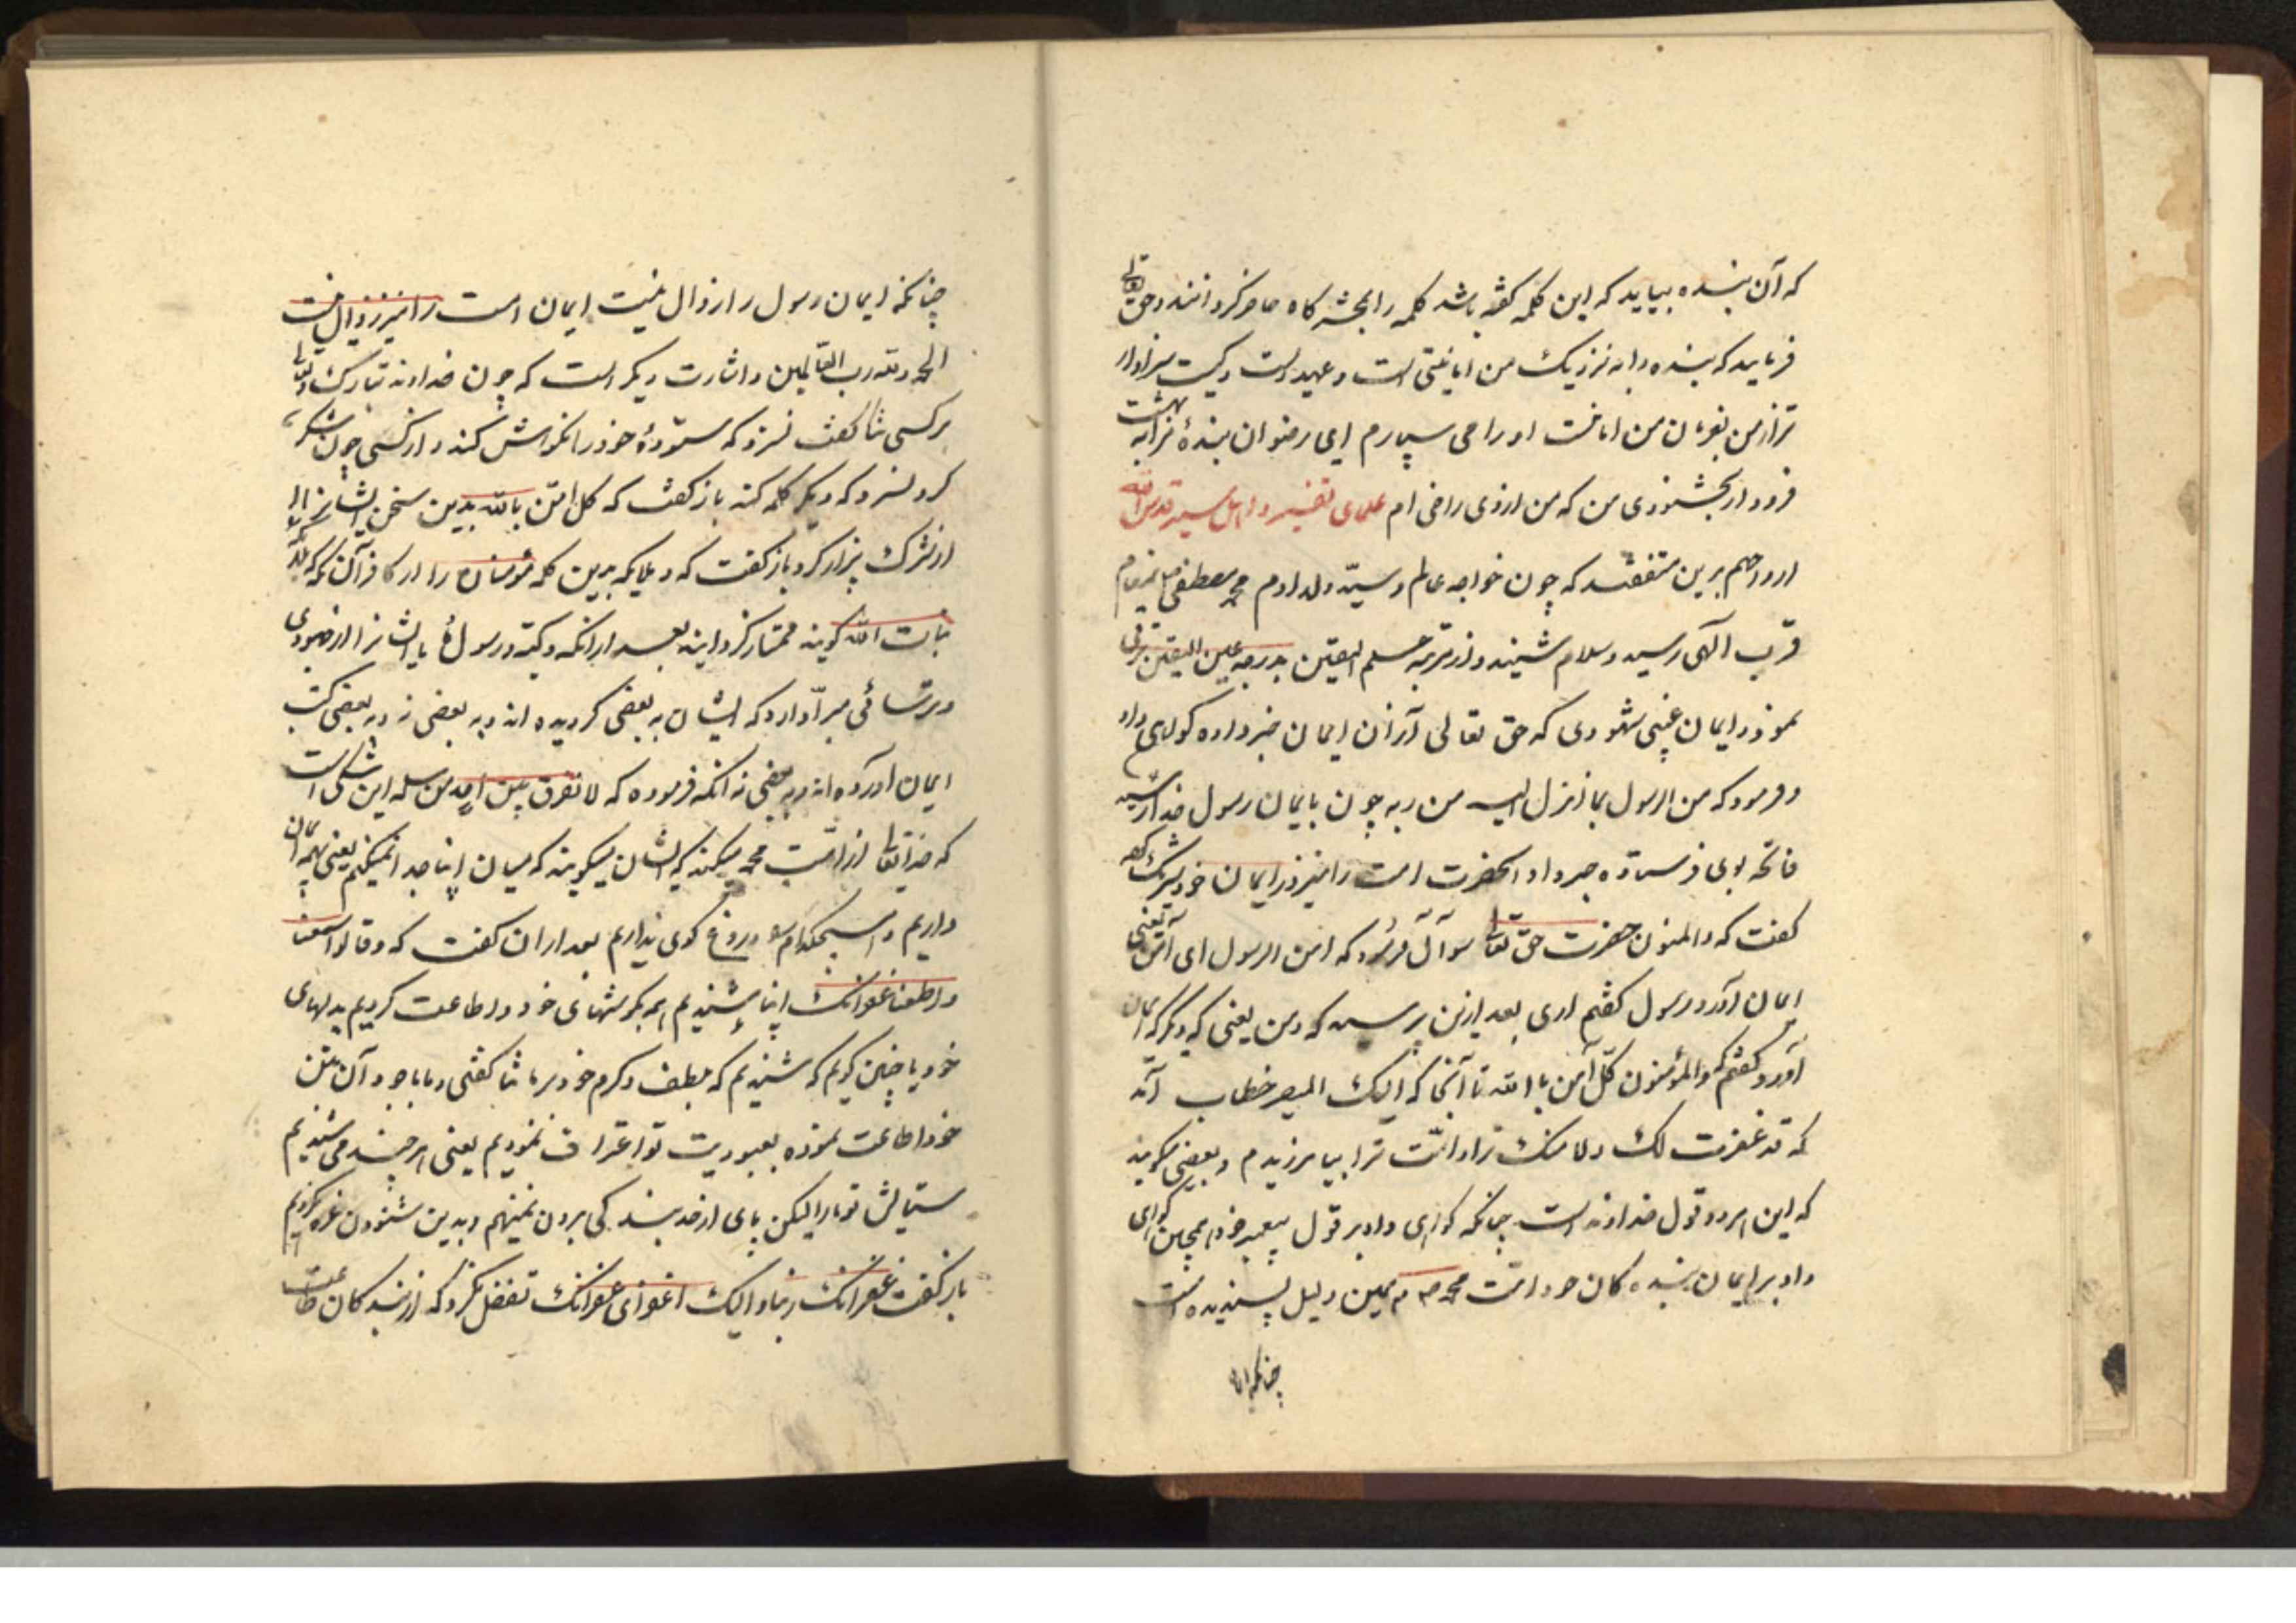 که آن بنده بیاید که این کلمه گفته باشد کلمه را بحشرگاه حاضر گردانند و حق تعالی
فرماید که بنده را به نزدیک من امانتی است و عهدیست و کیست سزاوار
تر از من بفرمان من امانت او را می سپارم ای رضوان بنده مرا به بهشت
فرود ار بخشنودی من که من ازوی راضی ام علمای تفسیر و اهل سیر قدس الله
ارواحهم برین متفقند که چون خواجه عالم و سید ولد ادم محمد مصطفی بمقام
قرب الهی رسید و سلام شنید و از مرتبه علم الیقین بدرجه عین الیقین ترقی
نمود و ایمان غیبی شهودی که حق تعالی از ان ایمان خبر داده کواهی داد
و فرمود که من الرسول بما انزل الیه من ربه چون بایمان رسول خدا رسید
فاتحه بوی فرستاده خبر داد انحضرت امت را نیز در ایمان خود شریک کرد
کفت که والمنون حضرت حق تعالی سوآل فرمود که امن الرسول ای آمن یعنی
ایمان آورد رسول کفتم اری بعد ازین پرسید که ومن یعنی که دیگر که ایمان
آورد کفتم والمؤمنون کل آمن باالله تا آنجا که الیک المصیر خطاب آمد
که قد غفرت لک ولامتک ترا و امت ترا بیامرزیدم و بعضی میکویند
که این هردو قول خداوند است چنانکه کواهی داد بر قول پیغمبر خود همچنین کواهی
داد بر ایمان بنده کان خود امت محمد ص م همین دلیل پسندیده است
چنانکه ا
چنانکه ایمان رسول را زوال نیست ایمان امت را نیز زوال نیست
الحمد لله رب العالمین و اشارت دیکر است که چون خداوند تبارک و تعالی
بر کسی ثنا کفت نسزد که ستودهٔ خود را نکوهش کند و از کسی چون شکر
کرد نسزد که دیکر کله کند باز کفت که کل امن بالله بدین سخن ایشانرا
از شرک بیزار کرد باز کفت که و ملایکه بدین کلمه مؤمنان را از کافران که ملائکه
بنات الله کویند ممتاز کردانید بعد ازانکه و کتبه و رسوله با ایشانرا از جهودی
و ترسائی مبرا دارد که ایشان به بعضی کرویده اند و به بعضی نه و به بعضی کتب
ایمان آورده اند و به بعضی نه انکه فرموده که لا نفرق بین احد من رسله این شکر است
که خدا تعالی از امت محمد میکند که ایشان میکویند که میان اینها جدا نمیکنیم یعنی بهمه ایمان
داریم و هیچکدام را دروغ کوی نداریم بعد ازان کفت که و قالوا سمعنا
و اطعنا غفرانک اینها شنیدیم همه بکوشهای خود و اطاعت کردیم بدلهای
خود یا چنین کویم که شنیدیم که بلطف و کرم خود بر ما ثنا کفتی و ما با وجود آن بتن
خود اطاعت نموده بعبودیت تو اعتراف نمودیم یعنی هرچند می شنیدیم
ستایش تو ما را لیکن پای از حد بندکی برون ننهیم و بدین شنودن غره نکردیم
باز کفت غفرانک ربنا و الیک ای غفرانک تفضل نکرد که از بنده کان طاعت